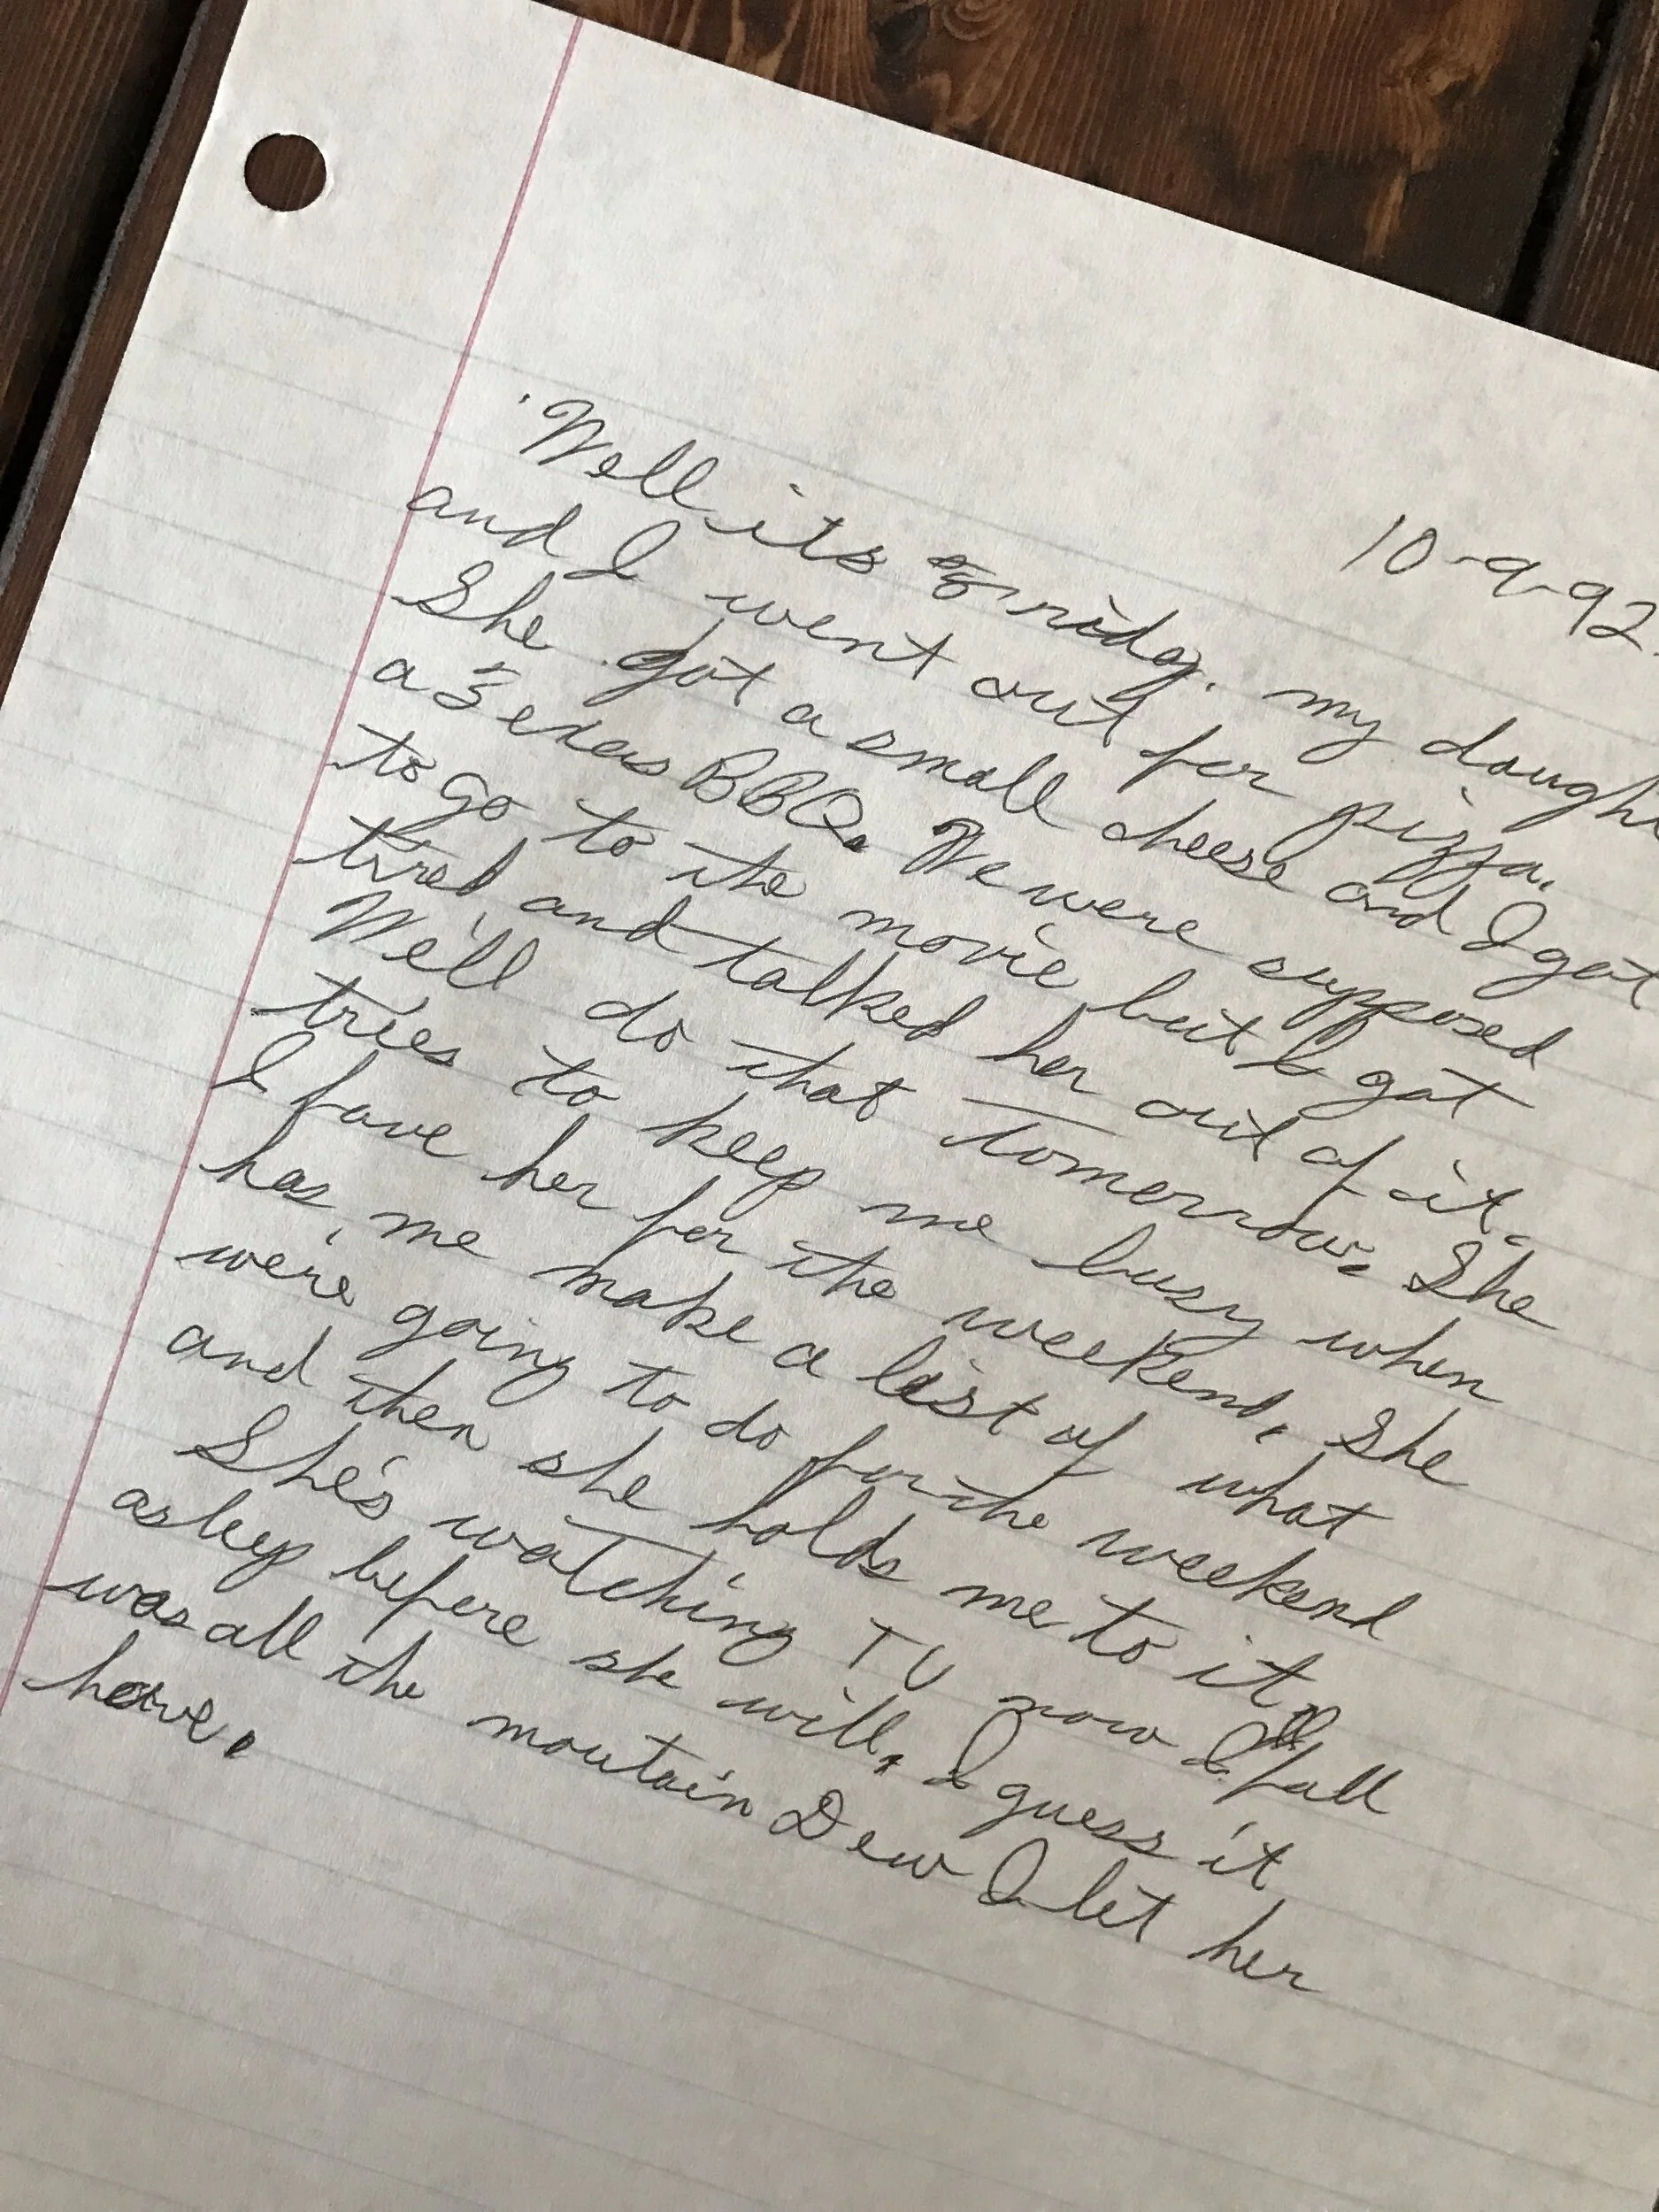 10-9-92
Well its Friday. my daugh
and I went out for pizza.
She got a small cheese and I got
a Texas BBQ. We were supposed
to go to the movie but I got
tired and talked her out of it.
We'll do that tomorrow. She
tries to keep me busy when
I have her for the weekend. She
has me make a list of what
we're going to do for the weekend
and then she holds me to it.
She's watching TV now I'll fall
asleep before she will. I guess it
was all the moutain Dew I let her
have.